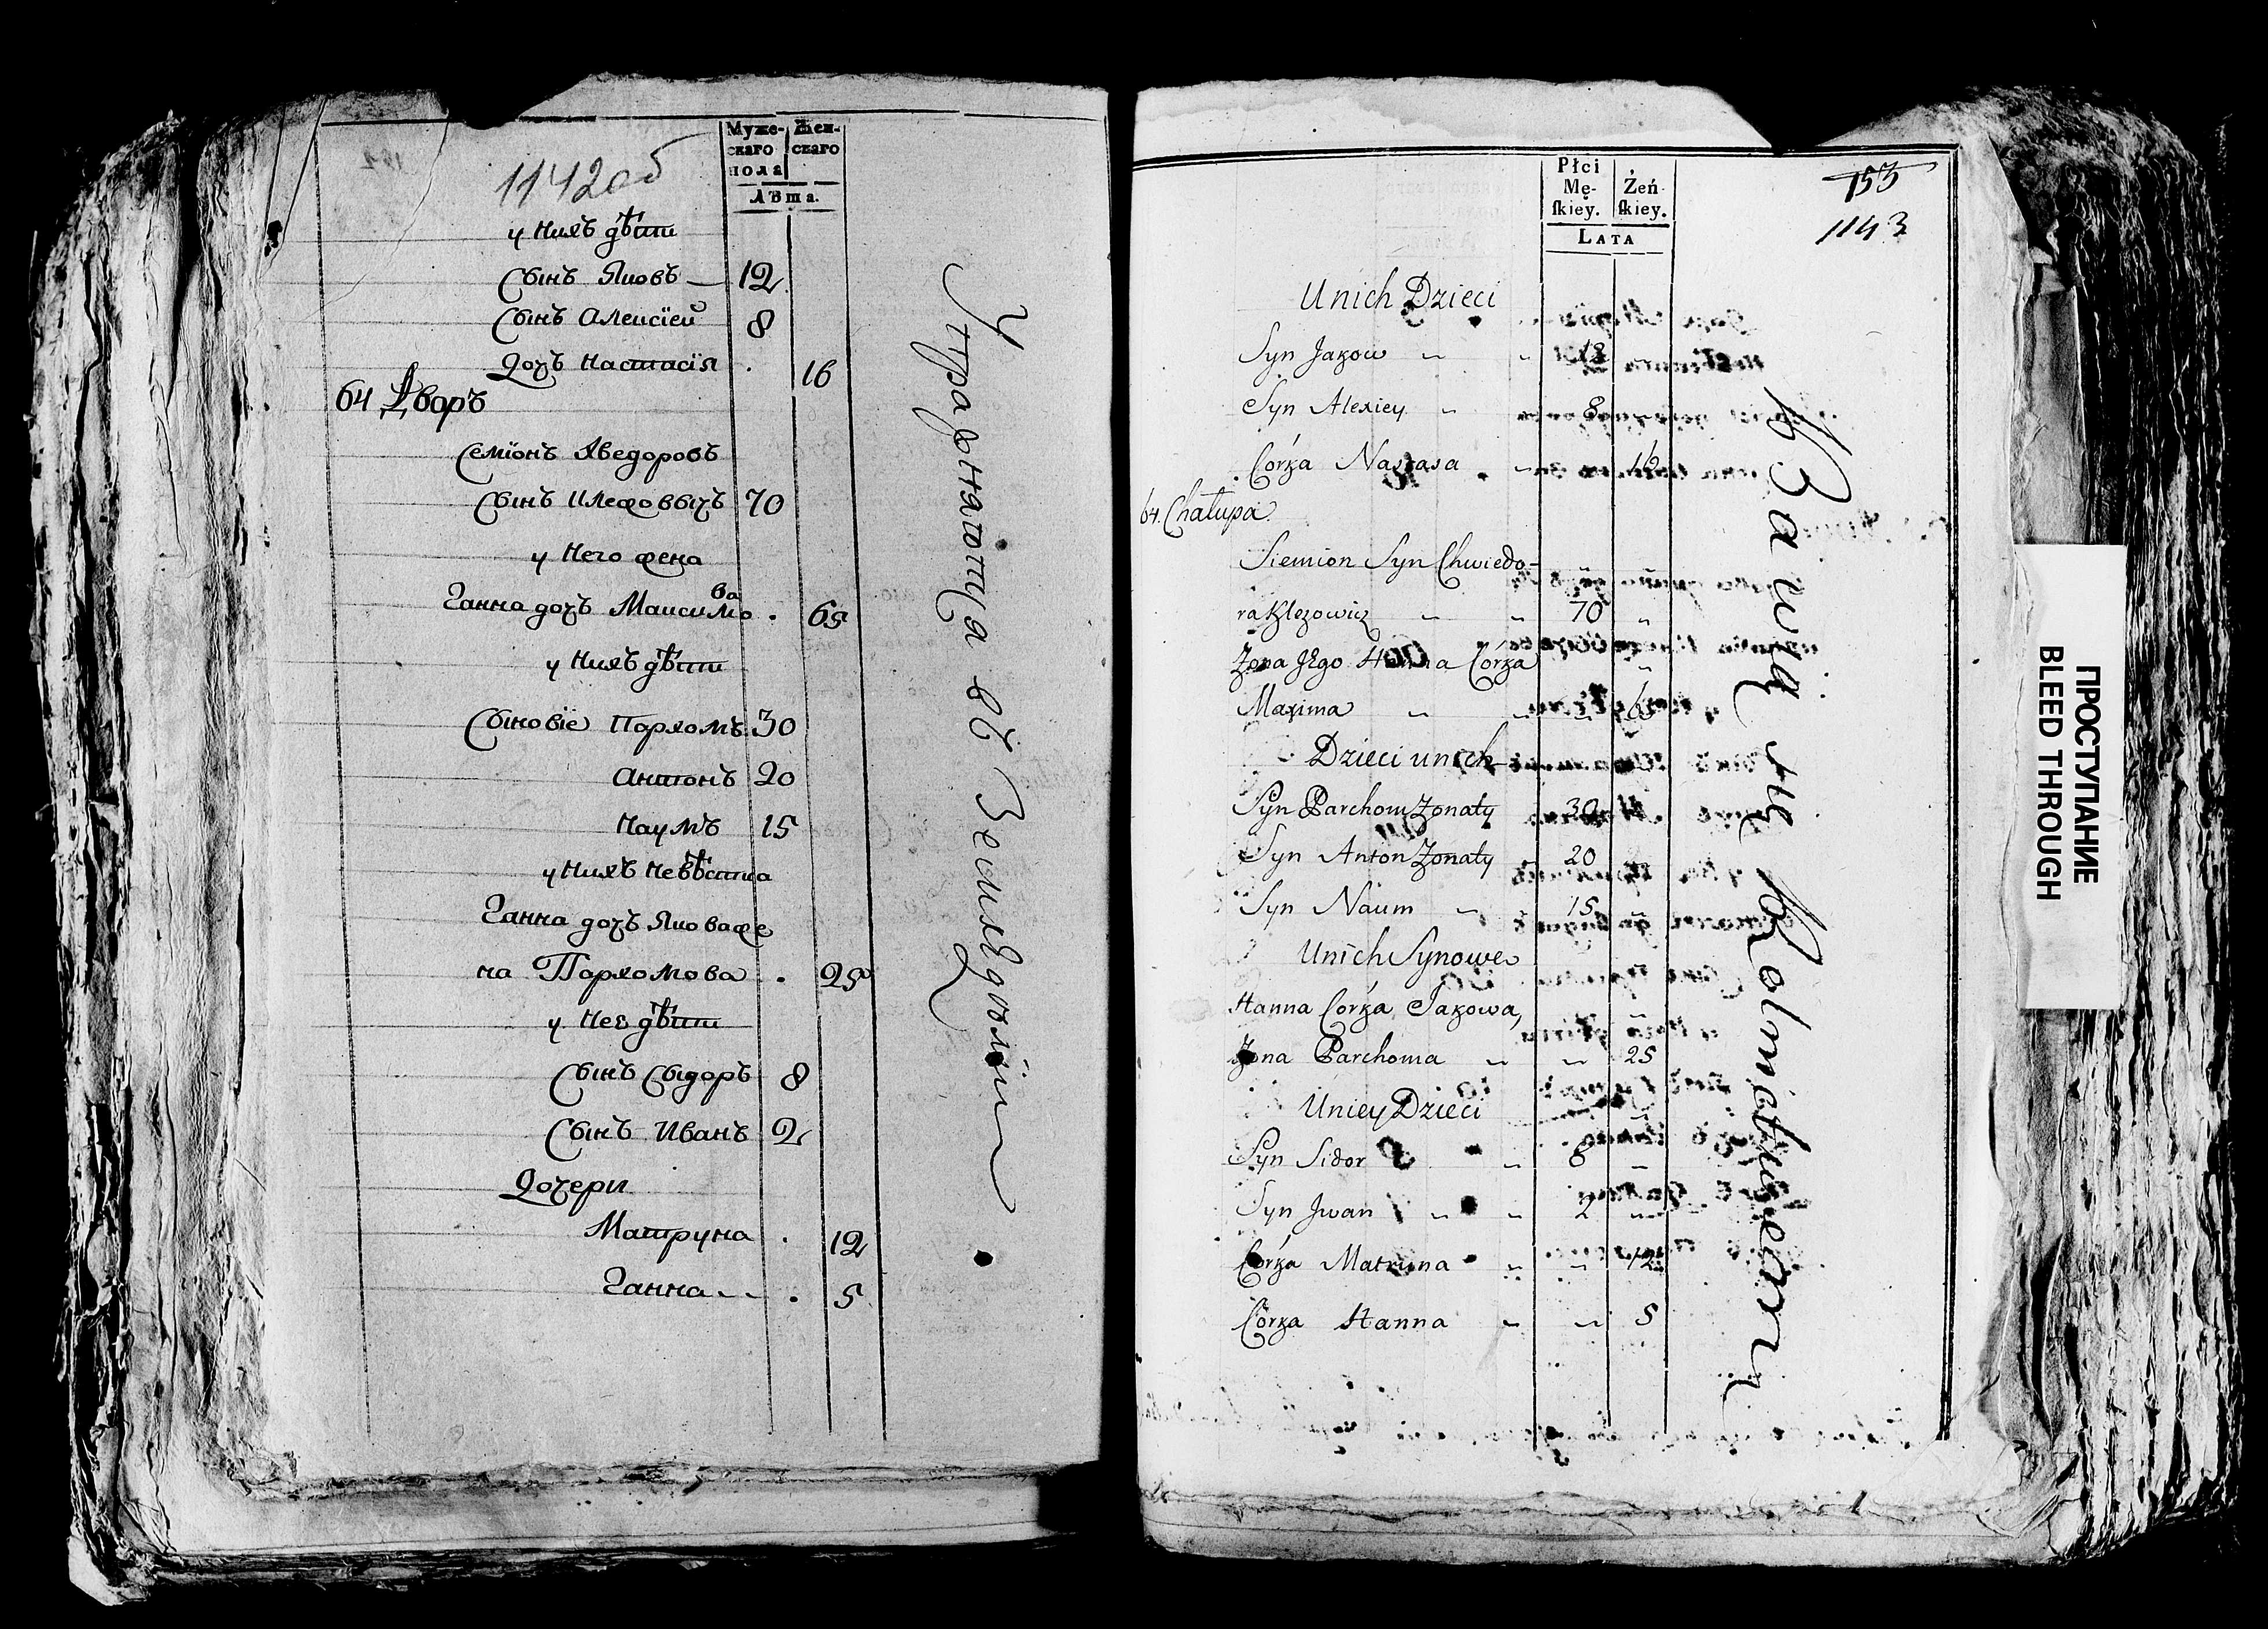 Муже- Жен-
скаго скаго
пола
лѣта.
1142об
у нихъ дѣти
Сынъ Яковъ — 12
Сынъ Алексiей 8
Дочъ Настасiя . 16
64 Дворъ
Семiонъ Хведоровъ
Сынъ Клезовычъ 70
у него жена
Ганна дочъ Максимова . 65
у нихъ дѣти
Сыновiе Пархомъ 30
Антонъ 20
Наумъ 15
у нихъ невѣстка
Ганна дочъ Якова же
на Пархомова . 25
у нее дѣти
Сынъ Сыдоръ 8
Сынъ Иванъ 2
Дочери
Матруна . 12
Ганна . 5
Упражняютца въ Земледѣлiи
Płci
Mę- Żeń-
ſkiey. ſkiey.
LATA
153
1143
Unich Dzieci
Syn Jakow 12
Syn Alexiey 8
Córka Nastasa 16
64. Chałupa
Siemion Syn Chwiedo-
ra Klezowicz 70
Żona Jego Hanna Córka
Maxima 65
Dzieci unich
Syn Parchom Żonaty 30
Syn Anton Żonaty 20
Syn Naum 15
Unich Synowe
Hanna Córka Jakowa,
Żona Parchoma 25
Uniey Dzieci
Syn Sidor 8
Syn Jwan 2
Córka Matruna 12
Córka Hanna 5
Bawią się Rolnictwem
ПРОСТУПАНИЕ
BLEED THROUGH